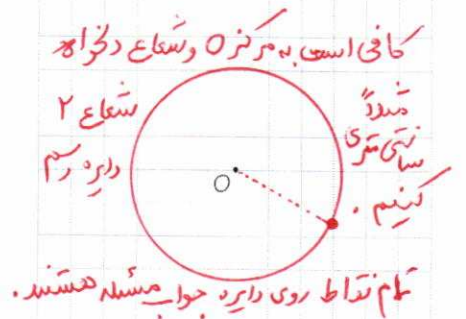 کافی است به مرکز O و شعاع دلخواه
مثلاً شعاع ۲
سانتی‌متری دایره رسم
کنیم.
O
تمام نقاط روی دایره جواب مسئله هستند.